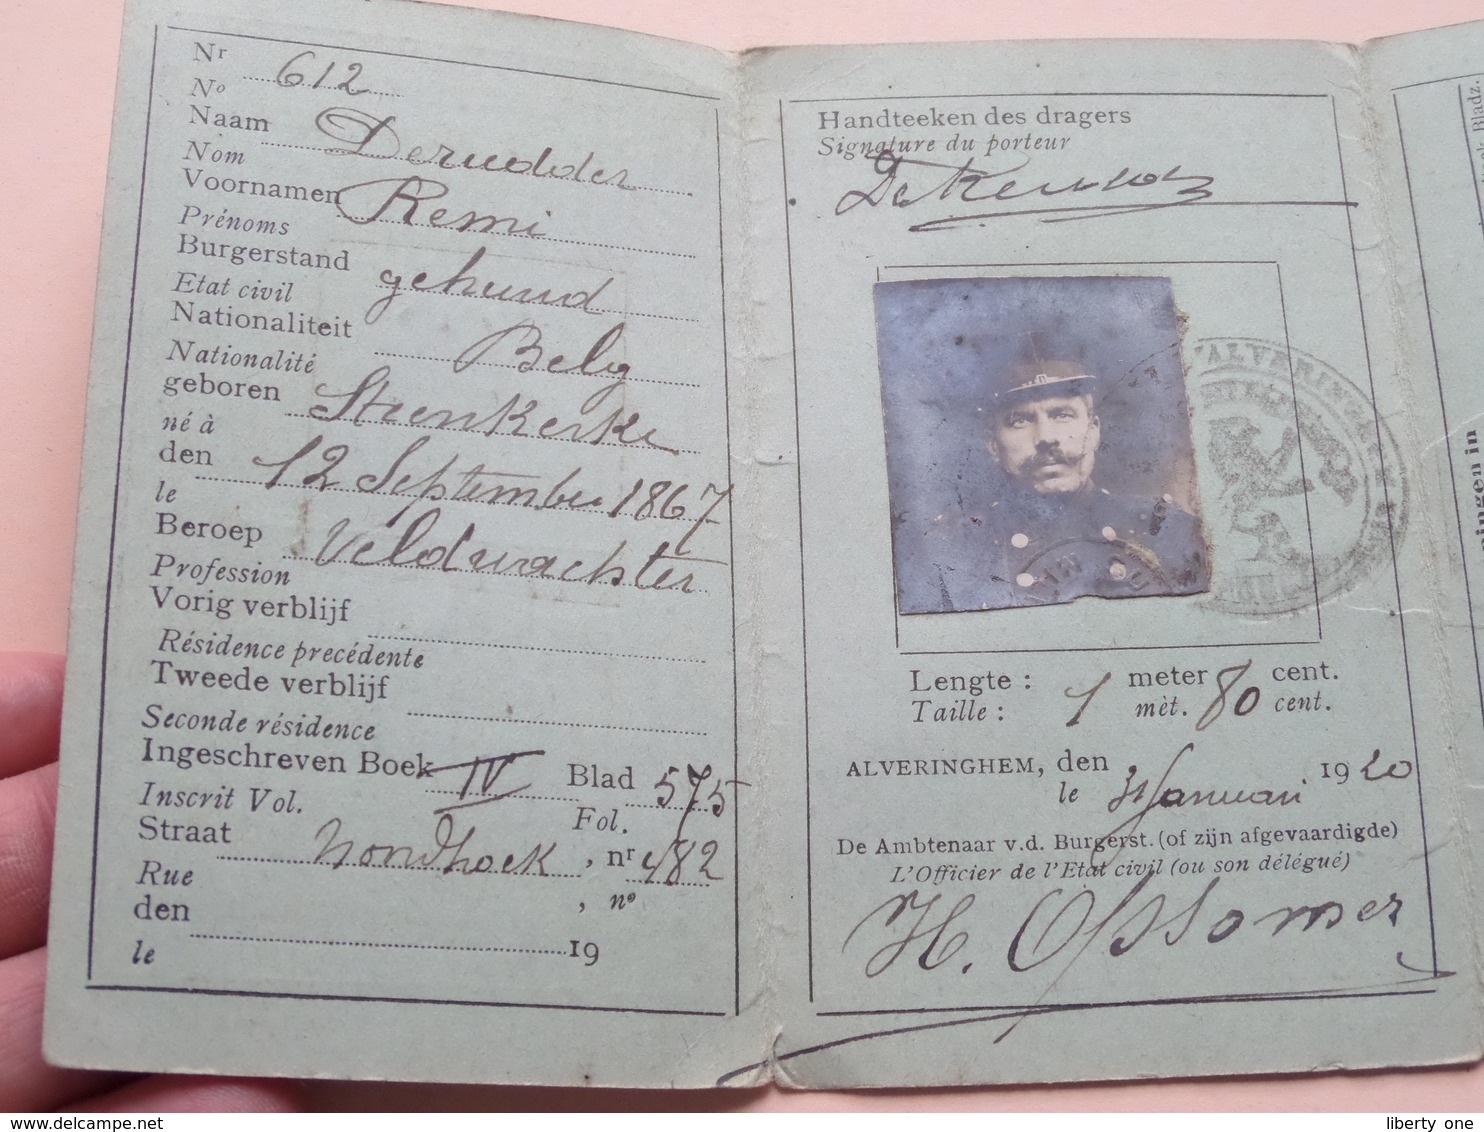 Nr 612
No
Naam Derudder
Nom
Voornamen Remi
Prénoms
Burgerstand gehuwd
Etat civil
Nationaliteit Belg
Nationalité
geboren Steenkerke
né à
den 12 September 1867
le
Beroep Veldwachter
Profession
Vorig verblijf
Résidence precédente
Tweede verblijf
Seconde résidence
Ingeschreven Boek IV Blad 575
Inscrit Vol. Fol.
Straat Noordhoek, nr 182
Rue , no
den 19
le
Handteeken des dragers
Signature du porteur
Lengte : 1 meter 80 cent.
Taille : mèt. cent.
ALVERINGHEM, den 31 Januari 1920
le
De Ambtenaar v.d. Burgerst. (of zijn afgevaardigde)
L'Officier de l'Etat civil (ou son délégué)
H. Opsomer
ALVERINGHEM
Bladz.
ingen in
liberty one